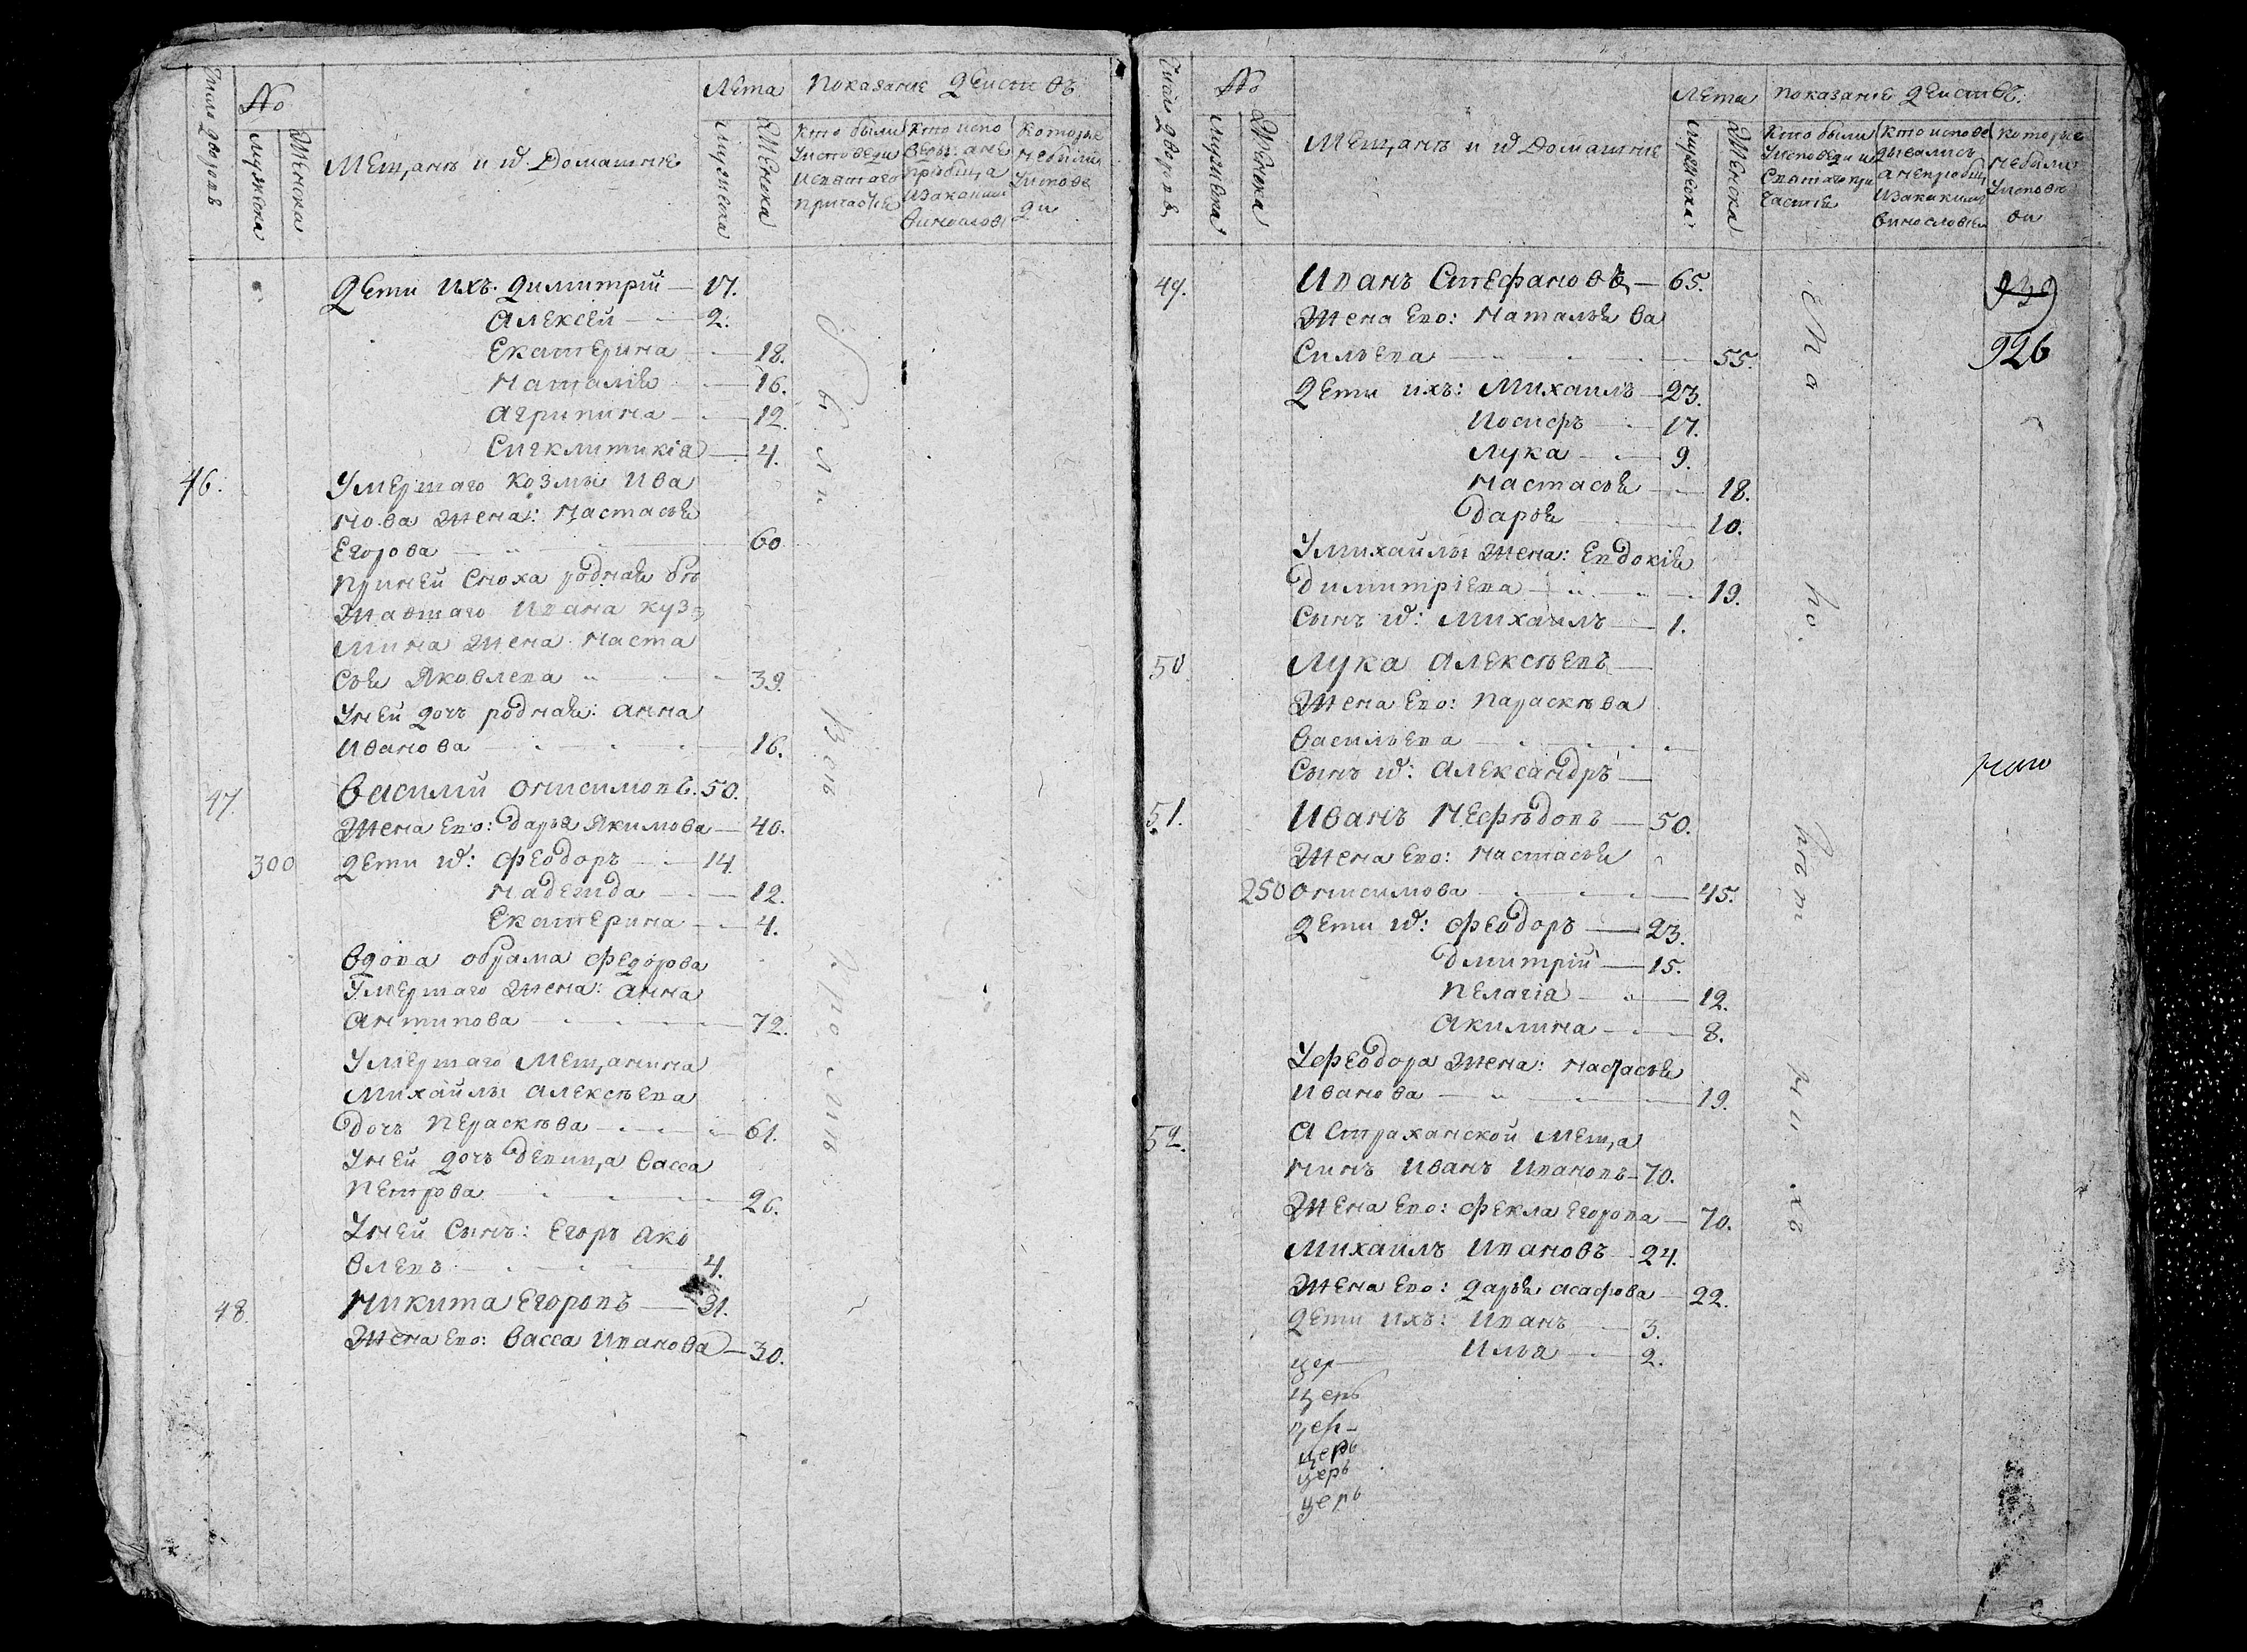 Число дворовъ
№
Мужеска
Женска
Мещанъ и ихъ Домашние
Лета
Мужеска
Женска
Показание действъ
Кто были
Кто испо
Которые
Уисповеди
не были
Уиспове
ди
Дети ихъ: Димитрий — 17.
Алексей — 2.
Екатерина — 18.
Наталия — 16.
Агрипина — 12.
Сигклитикїа — 4.
46. Умершаго Козмы Ива
нова жена: Настасья
Егорова — 60
При ней сноха родная бе
жавшаго Ивана Куз
мина жена Наста
сья Яковлева — 39.
У ней дочь родная: Анна
Иванова — 16.
47. Василий Онисимовъ. 50.
Жена Ево: Дарья Якимова — 40.
300 Дети их: Феодоръ — 14.
Надежда — 12.
Екатерина — 4.
Вдова Абрама Федорова
Умершаго жена: Анна
Антипова — 72.
Умершаго Мещанина
Михайлы Алексѣева
Дочь Пераскѣва — 61.
У ней дочь девица Васса
Петрова — 26.
У ней Сынъ: Егоръ Яко
влевъ — 4.
48. Никита Егоровъ — 31.
Жена Ево: Васса Иванова — 30.
Число дворовъ
№
Мужеска
Женска
Мещанъ и их Домашние
Лета
Мужеска
Женска
показание действъ.
Кто были
Кто испове
которые
Уисповеди и
дывались
небыли
Уисповѣ
ди
49. Иванъ Стефановъ — 65.
Жена Ево: Наталья Ва
сильева — 55.
Дети ихъ: Михаилъ — 23.
Иосифъ — 17.
Лука — 9.
Настасья — 18.
Дарья — 10.
У Михайлы жена: Евдокїя
Димитрїева — 19.
Сынъ их: Михаилъ — 1.
50. Лука Алексѣевъ —
Жена Ево: Параскѣва
Васильева —
Сынъ их: Александръ —
51. Иванъ Нефѣдовъ — 50.
Жена Ево: Настасья
250 Онисимова — 45.
Дети их: Феодоръ — 23.
Дмитрїй — 15.
Пелагїа — 12.
Акилина — 8.
У Феодора жена: Настасья
Иванова — 19.
52. Астраханской Меща
нинъ Иванъ Ивановъ — 70.
Жена Ево: Фекла Егорова — 70.
Михаилъ Ивановъ — 24.
Жена Ево: Дарья Асафова — 22.
Дети ихъ: Иванъ — 3.
Илья — 2.
цер
церь
цер
церь
церь
церь
939
926